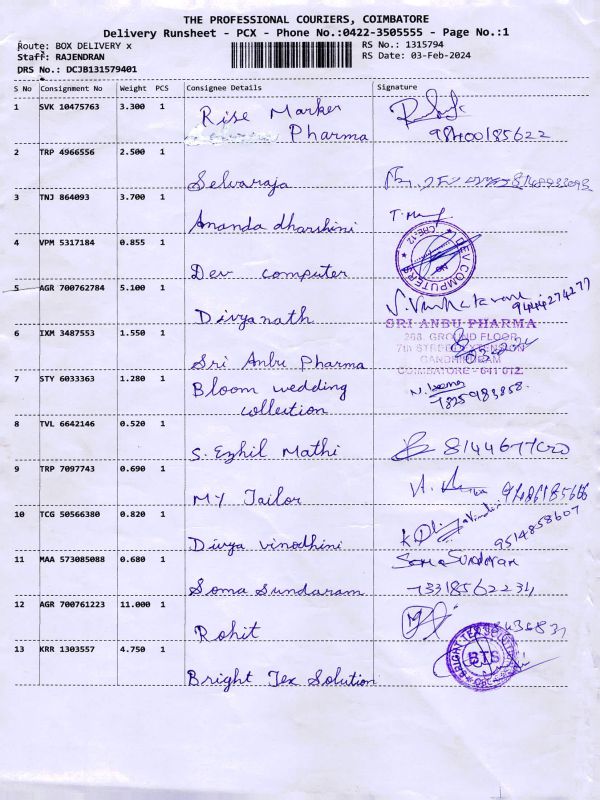 THE PROFESSIONAL COURIERS, COIMBATORE
Delivery Runsheet - PCX - Phone No.:0422-3505555 - Page No.:1
Route: BOX DELIVERY x RS No.: 1315794
Staff: RAJENDRAN RS Date: 03-Feb-2024
DRS No.: DCJB131579401
S No Consignment No Weight PCS Consignee Details Signature
1 SVK 10475763 3.300 1 Rise Marker
Pharma 98400185622
2 TRP 4966556 2.500 1
Selvaraja
3 TNJ 864093 3.700 1
Ananda dharshini
4 VPM 5317184 0.855 1 DEV COMPUTERS
Dev computer
5 AGR 700762784 5.100 1
Divyanath 9444274277
SRI ANBU PHARMA
6 IXM 3487553 1.550 1 GROUND FLOOR,
7th STREET EXTENSION
Sri Anbu Pharma GANDHIPURAM
COIMBATORE - 641 012.
7 STY 6033363 1.280 1 Bloom wedding
collection
8 TVL 6642146 0.520 1
S. Ezhil Mathi
9 TRP 7097743 0.690 1
My Tailor
10 TCG 50566380 0.820 1 9514858607
Divya vinodhini
11 MAA 573085088 0.680 1 Soma Sundaram
Soma Sundaram 73318562234
12 AGR 700761223 11.000 1
Rohit
13 KRR 1303557 4.750 1 BRIGHT TEX SOLUTION
BTS
Bright Tex Solution